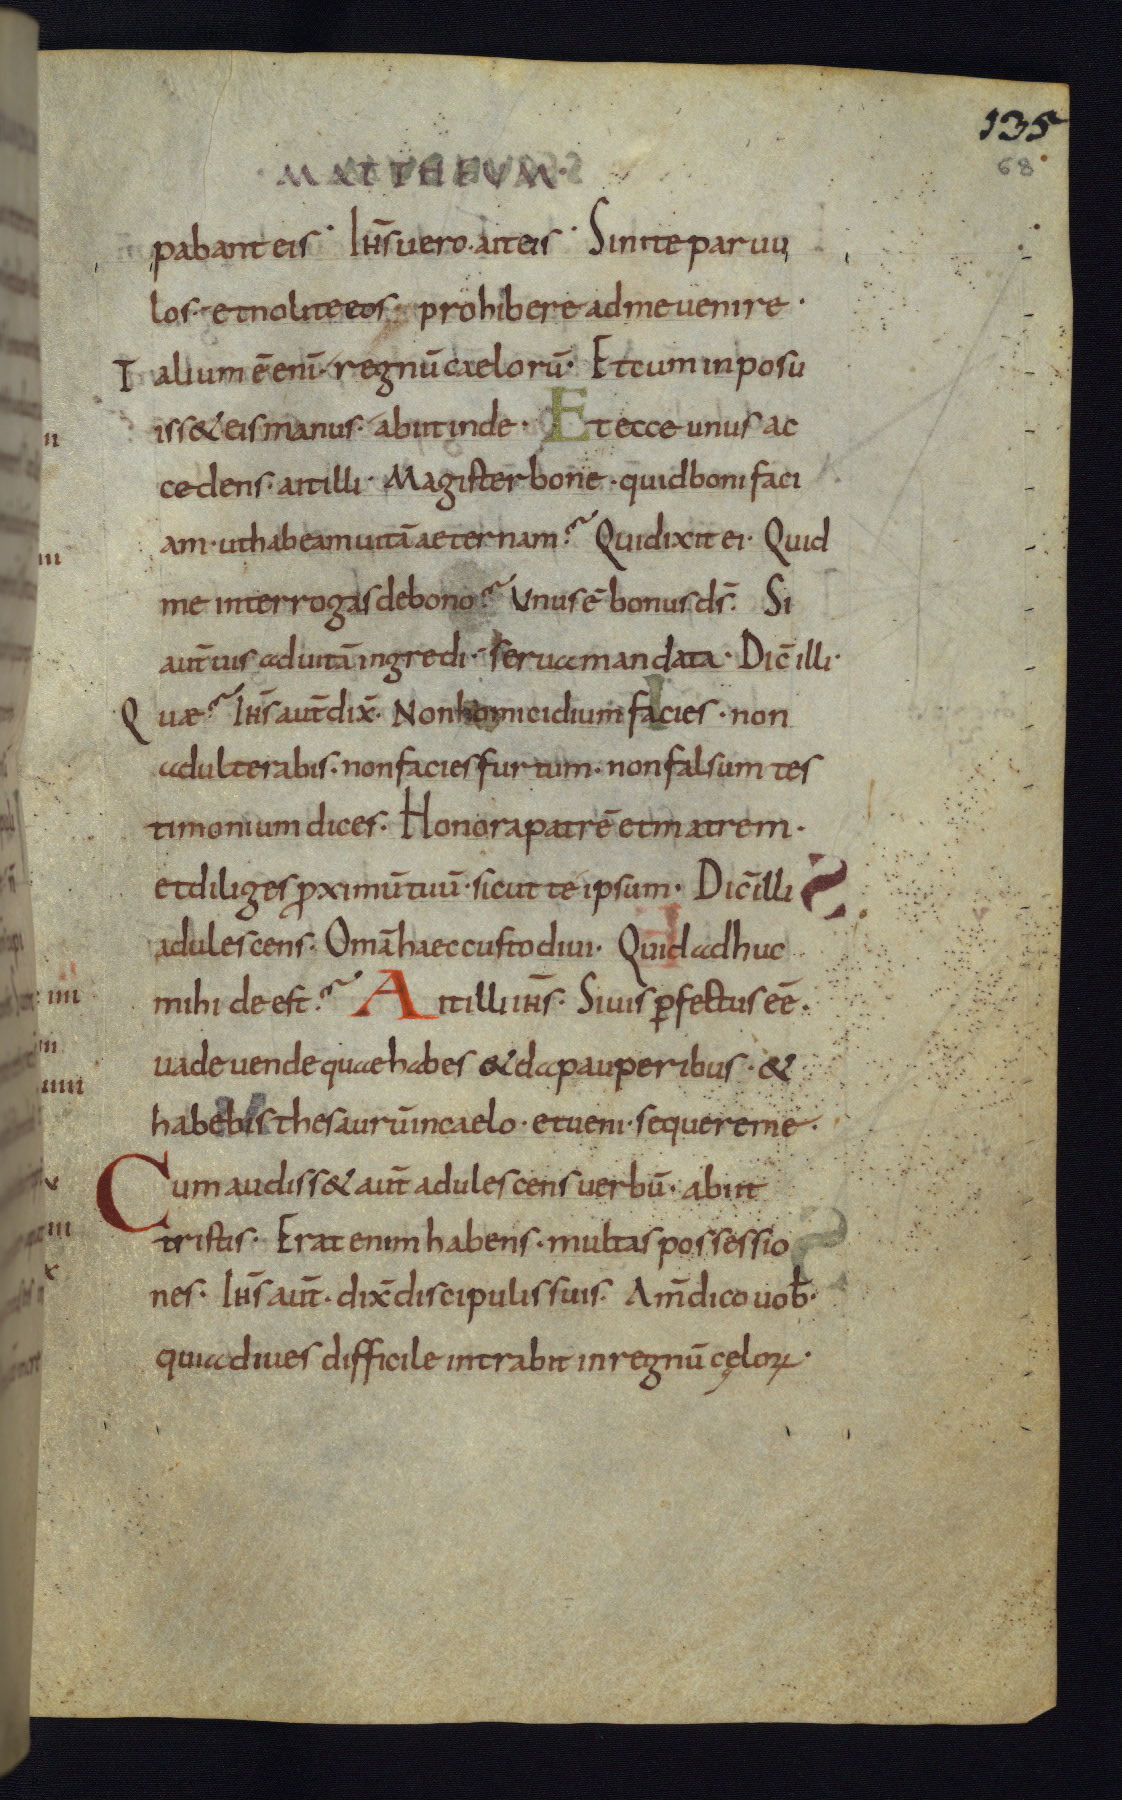 135
68
MATTHEUM.
pabant eis· Ihs̄ uero· ait eis· Sinite paruu
los· et nolite eos· prohibere ad me uenire·
Talium ē enī· regnū caelorū· Et cum inposu
iss& eis manus· abiit inde· Et ecce unus ac
cedens· ait illi· Magister bone· quid boni faci
am· ut habeam uitā aeternam? Qui dixit ei· Quid
me interrogas de bono? Unus ē bonus ds̄. Si
aut̄ uis ad uitā ingredi· serua mandata· Dic̄ illi·
Quæ? Ihs̄ aut̄ dix̄· Non homicidium facies· non
adulterabis· non facies furtum· non falsum tes
timonium dices· Honora patrē et matrem·
et diliges ꝓximū tuū· sicut te ipsum· Dic̄ illi
adulescens· Om̄a haec custodiui· Quid adhuc
mihi de est? Ait illi ihs̄· Si uis ꝑfectus eē·
uade uende quae habes & da pauperibus· &
habebis thesaurū in caelo· et ueni· sequere me·
Cum audiss& aut̄ adulescens uerbū· abiit
tristis· Erat enim habens· multas possessio
nes· Ihs̄ aut̄· dix̄ discipulis suis· Am̄ dico uob̄·
quia diues difficile intrabit in regnū cęloꝝ·